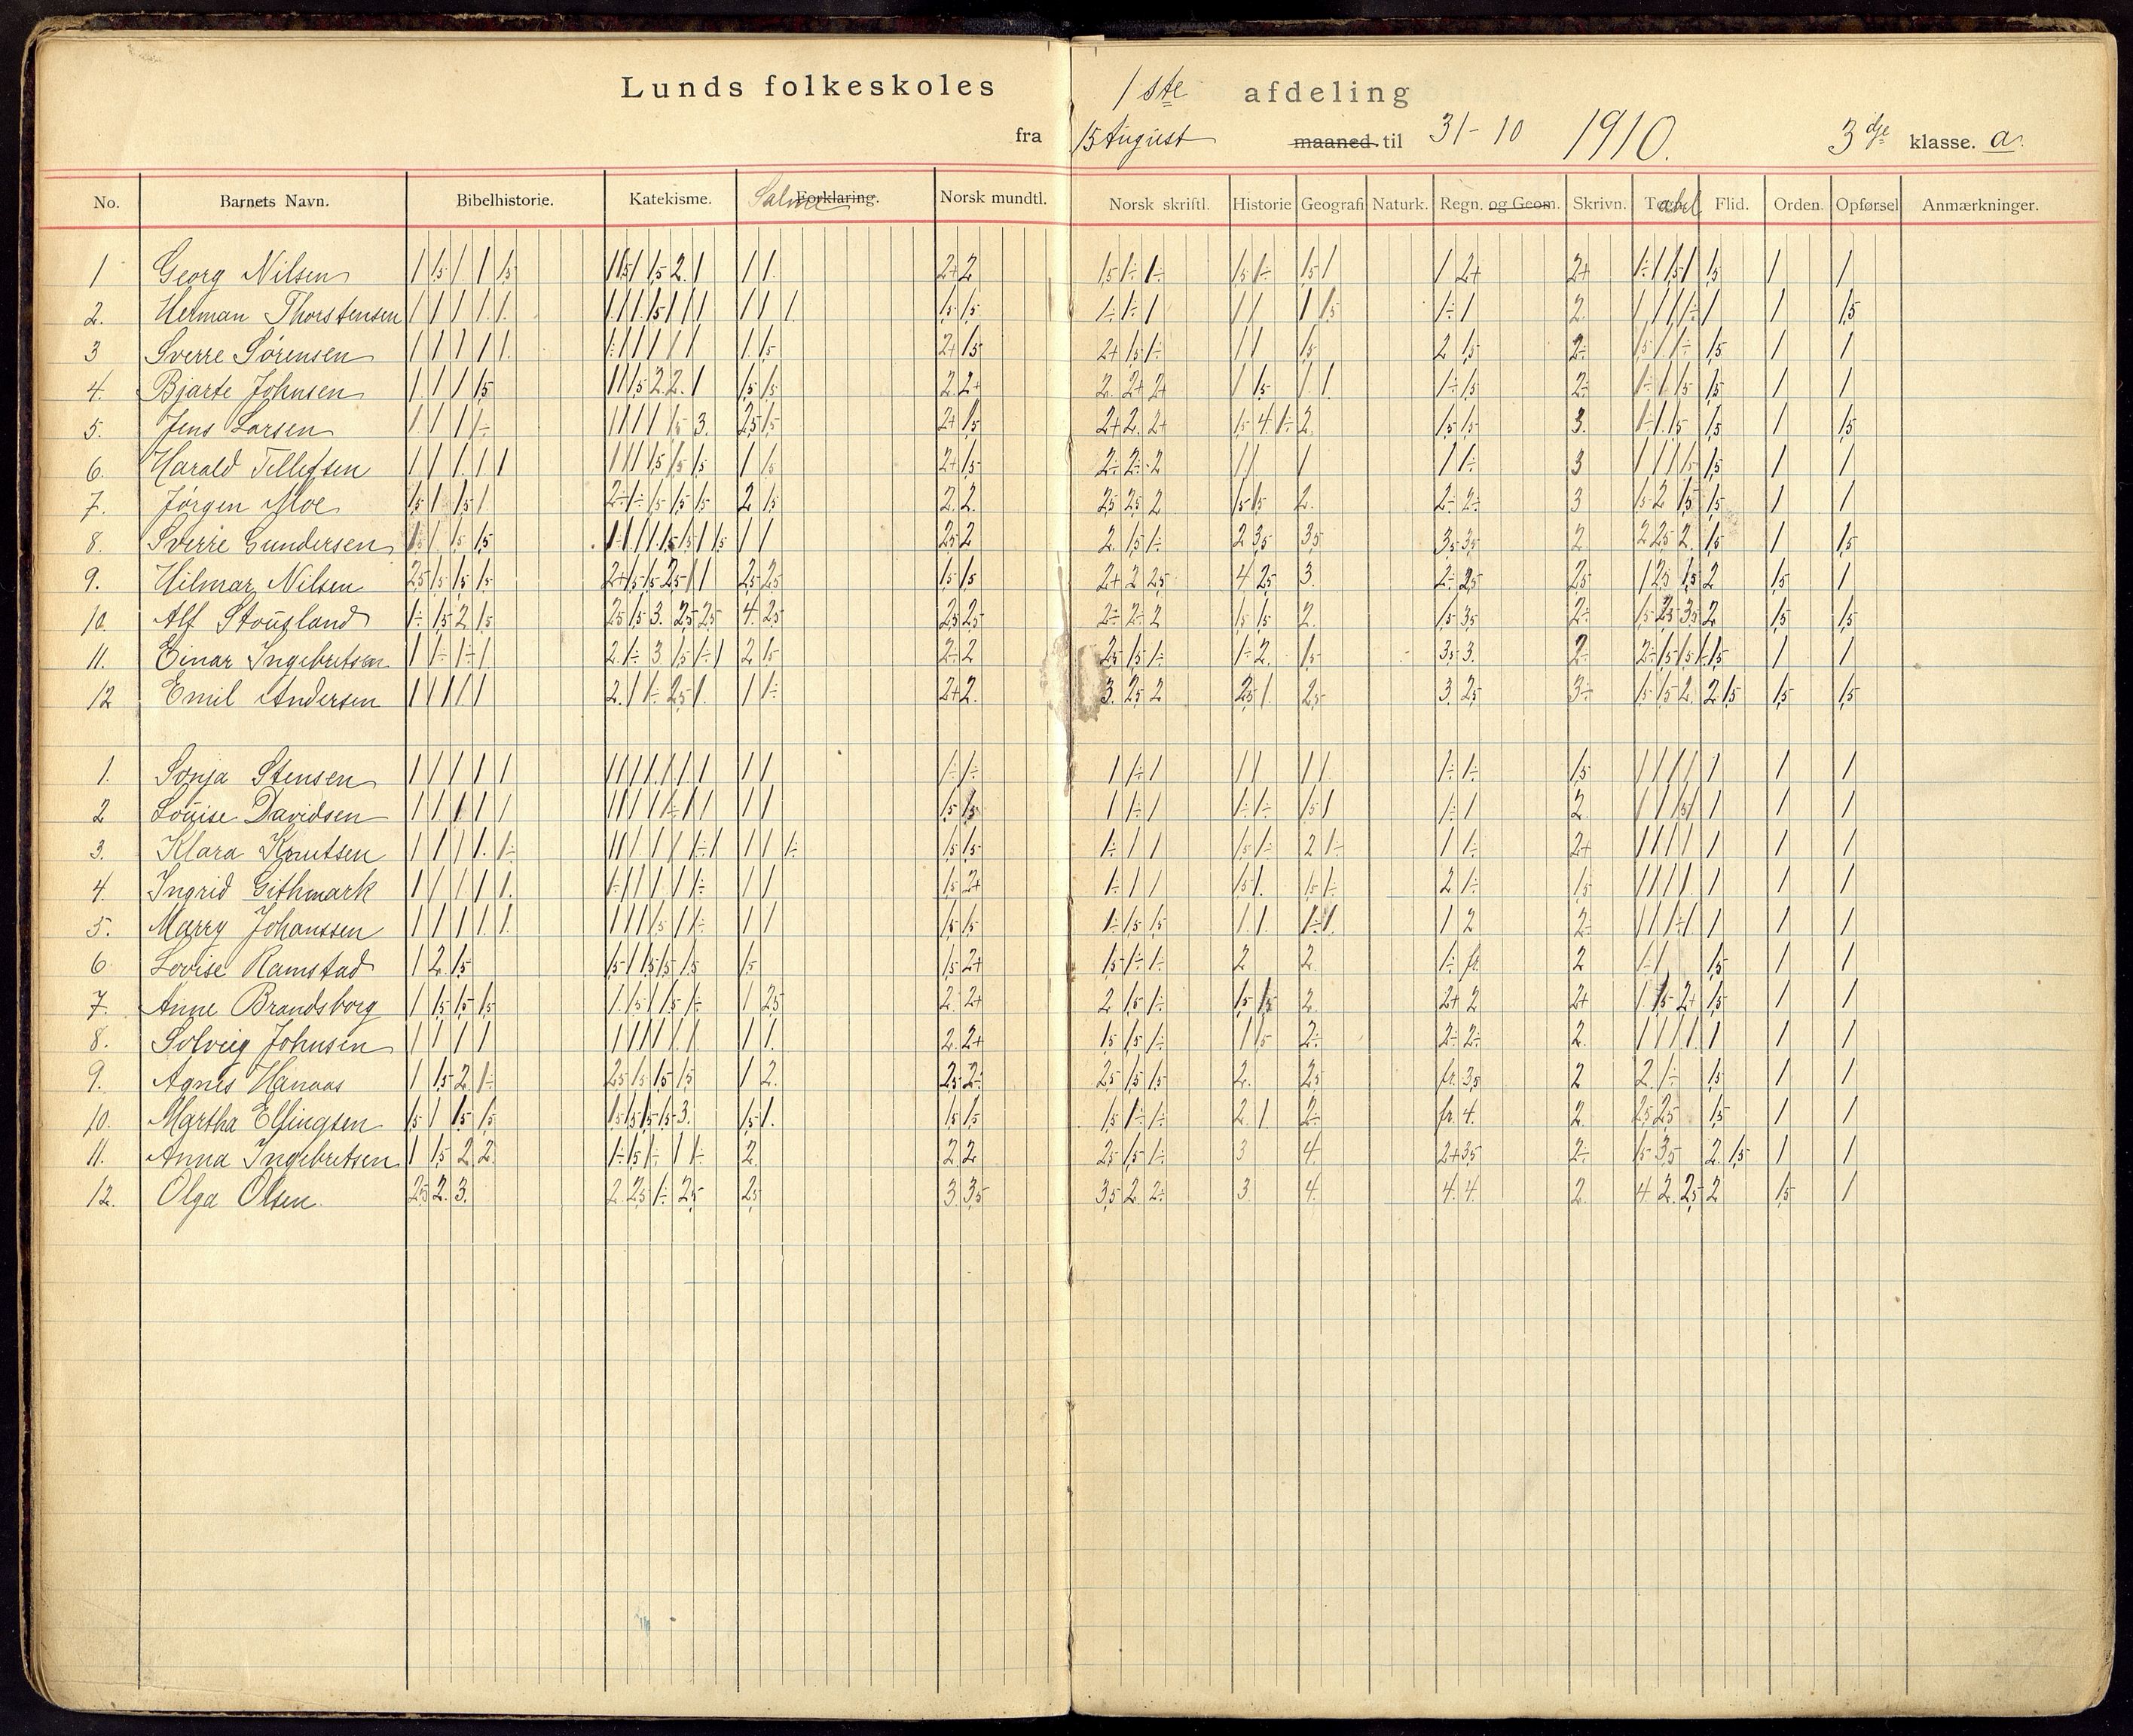 Lunds folkeskoles 1ste afdeling
fra 15 August maaned til 31-10 1910. 3dje klasse. a.
No. Barnets Navn. Bibelhistorie. Katekisme. Salme Forklaring. Norsk mundtl. Norsk skriftl. Historie Geografi Naturk. Regn. og Geom. Skrivn. Flid. Orden. Opførsel Anmærkninger.
1 Georg Nilsen 1 1,5 1 1 1,5 1 1 2+ 2 1,5 1÷ 1÷ 1,5 1÷ 1,5 1 1 2+ 2+ 1,5 1 1
2. Herman Thorstensen 1 1 1 1. 1. 1 1 1. 1,5 1,5 1÷ 1÷ 1 1 1 1 1,5 1÷ 1 2. 1 1 1,5
3 Sverre Sørensen 1 1 1 1 1. 1. 1,5 2+ 1,5 2+ 1,5 1÷ 1 1 1,5 2 1,5 2÷ 1,5 1 1
4. Bjarte Johnsen 1 1 1 1,5 1,5 1,5 2. 2+ 2. 2+ 2+ 1 1,5 1. 1 1÷ 1,5 2÷ 1,5 1 1
5. Jens Larsen 1 1 1 1÷ 2,5 1,5 2+ 1,5 2+ 2. 2+ 1,5 4. 1÷ 2. 1,5 1,5 3. 1,5 1 1,5
6. Harald Tellefsen 1 1 1. 1 1 1 1,5 2+ 1,5 2÷ 2÷ 2 1 1 1 1 1÷ 3 1,5 1 1
7. Jørgen Moe 1,5 1 1,5 1 2÷ 1÷ 1,5 1,5 1,5 2 1,5 2. 2. 2,5 2,5 2 1,5 1,5 2. 2÷ 2÷ 3 1,5 2 1,5 1,5 1 1
8. Sverre Gundersen 1 1,5 1,5 1 1 2,5 2 2. 1,5 1÷ 2 3,5 3,5 3,5 3,5 2 2 2,5 2. 1,5 1 1,5
9. Hilmar Nilsen 2,5 1,5 1,5 1,5 2+ 1,5 1,5 2,5 1 1 2,5 2,5 1,5 1,5 2+ 2 2,5 4 2,5 3. 2÷ 2,5 2,5 1 2,5 1,5 2 1,5 1
10. Alf Stousland 1÷ 1,5 2 1,5 2,5 1,5 3. 2,5 2,5 4. 2,5 2,5 2,5 2÷ 2÷ 2 1,5 1,5 2. 1,5 3,5 2÷ 1,5 2,5 3,5 2 1,5 1,5
11. Einar Ingebretsen 1 1÷ 1÷ 1 2. 1÷ 3 1,5 1÷ 1 2 1,5 2÷ 2 2,5 1,5 1÷ 1÷ 2. 1,5 3,5 3. 2÷ 1 1
12 Emil Andersen 1 1 1 1 2. 1 1÷ 2,5 1. 1 1÷ 2+ 2. 3. 2,5 2 2,5 1. 2,5 3. 2,5 3÷ 1,5 1,5 2. 2 1,5 1,5 1,5
1. Sonja Stensen 1 1 1 1 1 1 1 1÷ 1÷ 1 1÷ 1 1 1 1 1 1÷ 1÷ 1,5 1 1 1 1 1 1 1
2 Louise Davidsen 1 1 1 1 1 1 1 1,5 1,5 1 1÷ 1 1÷ 1÷ 1,5 1 1÷ 1 2. 1 1 1
3. Klara Knutsen 1 1 1 1. 1÷ 1 1 1÷ 1,5 1,5 1÷ 1 1 1,5 1÷ 2 1÷ 1 1÷ 2+ 1 1 1 1 1 1 1
4. Ingrid Githmark 1 1 1 1 1. 1÷ 1 1 1 1 1÷ 1 1 1,5 2+ 1÷ 1 1 1,5 1. 1,5 1÷ 2 1÷ 1,5 1 1 1 1. 1 1 1
5. Marry Johanssen 1 1 1 1. 1. 1 1 1 1,5 1 1÷ 1 1 1,5 1,5 1÷ 1,5 1,5 1. 1. 1÷ 1. 1 2 2÷ 1 1 1÷ 1 1 1 1
6 Lovise Ramstad 1 2. 1,5 1,5 1,5 2+ 1,5 1÷ 1÷ 2 2. 1÷ fr. 2 1÷ 1 1,5 1 1
7. Anne Brandsborg 1 1,5 1,5 1,5 1. 1,5 1 1,5 1÷ 1 2,5 2. 2+ 2 1,5 1÷ 1,5 1,5 2. 2+ 2 2+ 1 1,5 2+ 1,5 1 1
8. Solveig Johnsen 1 1 1 1 1 1 1 1 1. 1 1 1. 2. 2+ 1,5 1,5 1÷ 1 1,5 2÷ 2÷ 2÷ 2. 1 1 1 1. 1 1 1
9. Agnes Hanaas 1 1,5 2 1÷ 2,5 1,5 1,5 1,5 1 2. 2,5 2÷ 2,5 1,5 1,5 2. 2,5 fr. 3,5 2 2. 1÷ 1,5 1 1
10. Martha Ellingsen 1,5 1 1,5 1,5 1,5 1,5 1,5 1,5 3. 1,5 1. 1,5 1,5 1,5 1÷ 1÷ 2. 1 2÷ fr. 4. 2. 2,5 2,5 1,5 1 1
11. Anna Ingebretsen 1 1,5 2 2. 1÷ 1,5 1÷ 1 1÷ 2. 2. 2 2,5 1,5 1÷ 3 4. 2+ 3,5 2÷ 1,5 3,5 2. 1,5 1 1
12. Olga Olsen. 2,5 2. 3. 2. 2,5 1÷ 2,5 2,5 3. 3,5 3,5 2 2÷ 3. 4. 4. 4. 2. 4 2. 2,5 2 1,5 1